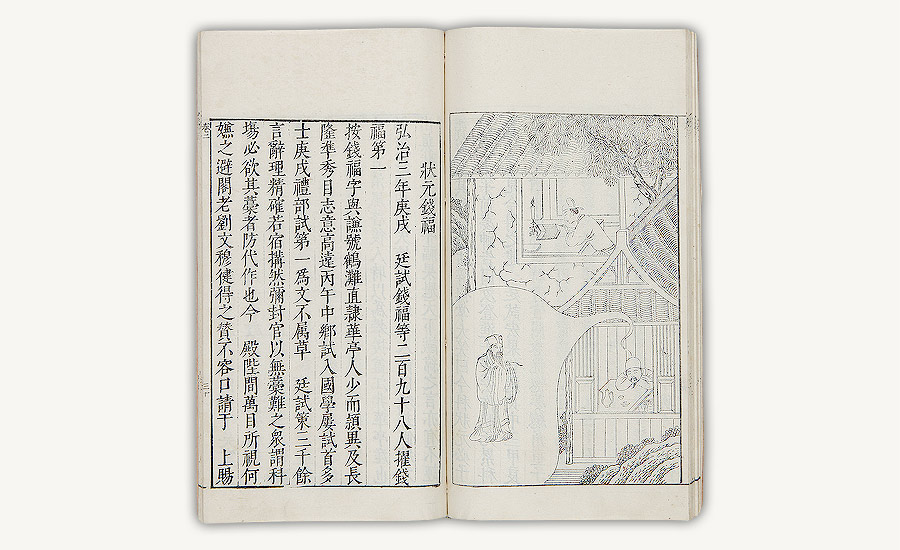 狀元錢福
弘治三年庚戌 廷試錢福等二百九十八人擢錢
福第一
按錢福字與謙號鶴灘直隸華亭人少而頴異及長
隆準秀目志意高遠丙午中鄉試入國學屢試首多
士庚戌禮部試第一爲文不属草 廷試策三千餘
言辭理精確若宿搆然彌封官以無藁難之衆謂科
塲必欲其藁者防代作也今 殿陛間萬目所視何
嫌之避閣老劉文穆徤得之贊不容口請于 上賜
卷二